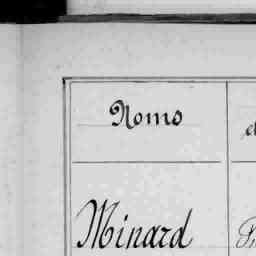 Noms
Minard